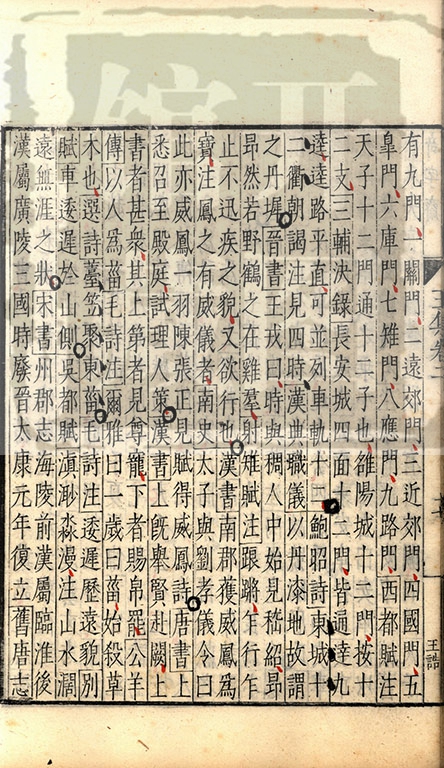 有九門一關門二遠郊門三近郊門四國門五
臯門六庫門七雉門八應門九路門西都賦注
天子十二門通十二子也雒陽城十二門按十
二支三輔決錄長安城四面十二門皆通達九
逵逵路平直可並列車軌十三鮑昭詩東城十
二衢朝謁注見四時漢典職儀以丹漆地故謂
之丹墀晉書王戎曰時與稠人中始見嵇紹昂
昂然若野鶴之在雞羣射雉賦注踉蹡乍行乍
止不迅疾之貌又欲行也漢書南郡獲威鳳爲
寶注鳳之有威儀者南史太子與劉孝儀令曰
此亦威鳳一羽陳張正見賦得威鳳詩唐書上
悉召至殿庭試理人策漢書上旣舉賢赴闕上
書者甚衆其上第者見尊寵下者賜帛罷公羊
傳以人爲菑毛詩注爾雅曰一歲曰菑始殺草
木也選詩臺笠聚東菑毛詩注逶遲歷遠貌別
賦車逶遲於山側吳都賦滇㴐淼漫注山水濶
遠無涯之狀宋書州郡志海陵前漢屬臨淮後
漢屬廣陵三國時廢晉太康元年復立舊唐志